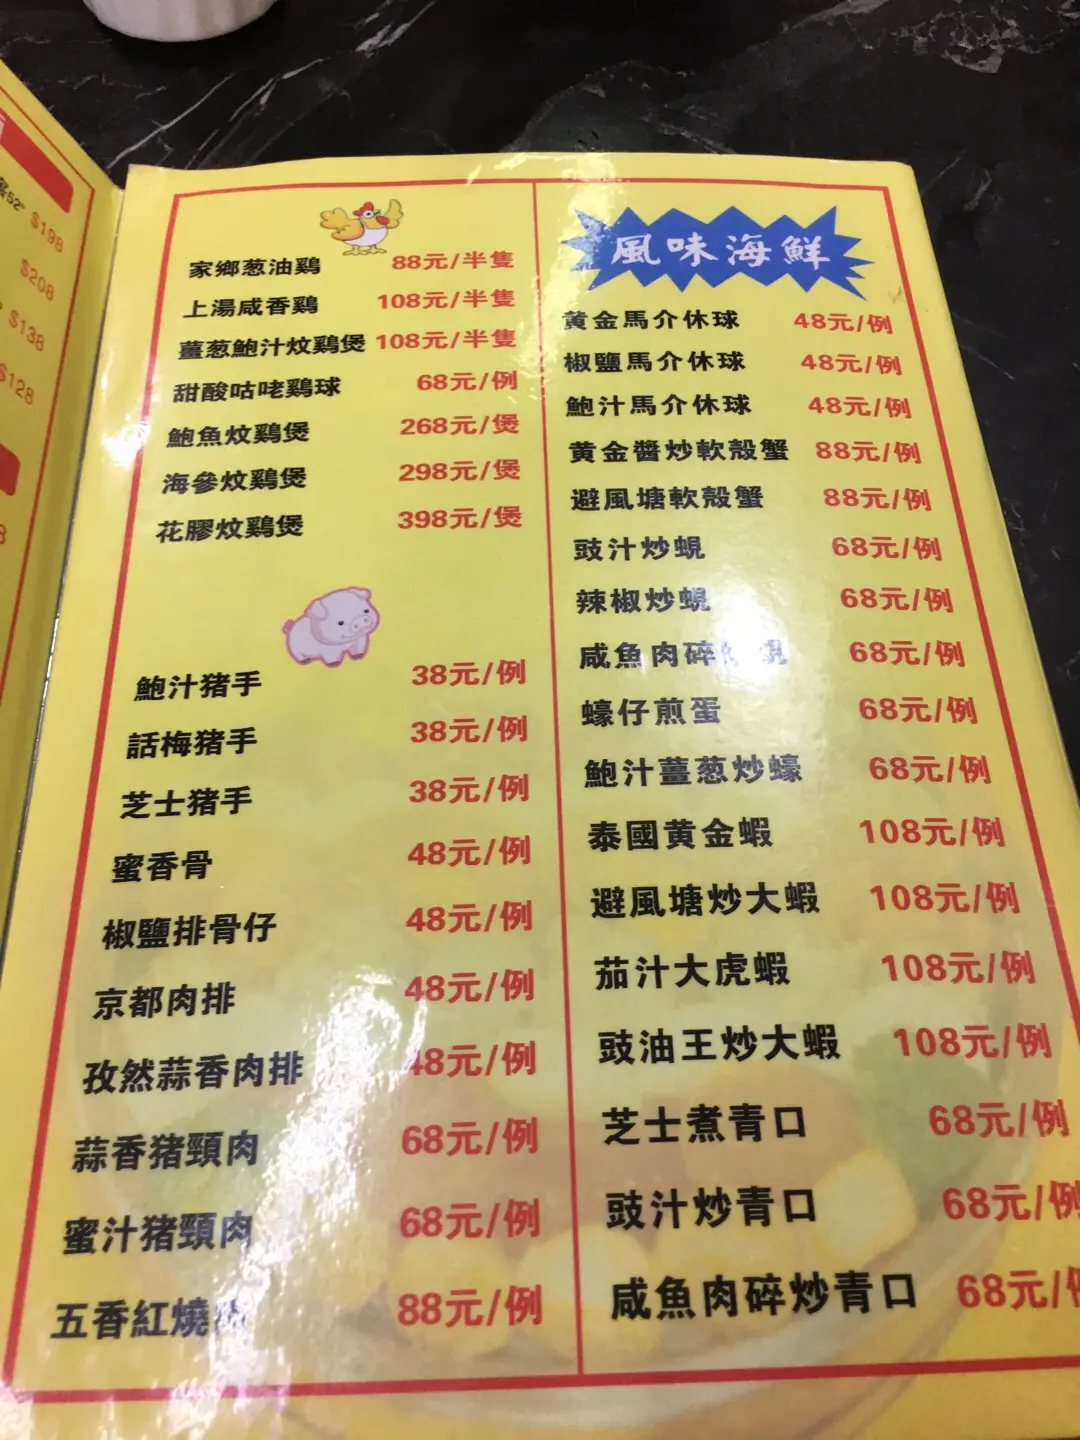 $198
$208
$138
$128
家鄉葱油鷄 88元/半隻
上湯咸香鷄 108元/半隻
薑葱鮑汁炆鷄煲 108元/半隻
甜酸咕咾鷄球 68元/例
鮑魚炆鷄煲 268元/煲
海參炆鷄煲 298元/煲
花膠炆鷄煲 398元/煲
鮑汁猪手 38元/例
話梅猪手 38元/例
芝士猪手 38元/例
蜜香骨 48元/例
椒鹽排骨仔 48元/例
京都肉排 48元/例
孜然蒜香肉排 48元/例
蒜香猪頸肉 68元/例
蜜汁猪頸肉 68元/例
五香紅燒 88元/例
風味海鮮
黄金馬介休球 48元/例
椒鹽馬介休球 48元/例
鮑汁馬介休球 48元/例
黄金醬炒軟殻蟹 88元/例
避風塘軟殻蟹 88元/例
豉汁炒蜆 68元/例
辣椒炒蜆 68元/例
咸魚肉碎 蜆 68元/例
蠔仔煎蛋 68元/例
鮑汁薑葱炒蠔 68元/例
泰國黄金蝦 108元/例
避風塘炒大蝦 108元/例
茄汁大虎蝦 108元/例
豉油王炒大蝦 108元/例
芝士煮青口 68元/例
豉汁炒青口 68元/例
咸魚肉碎炒青口 68元/